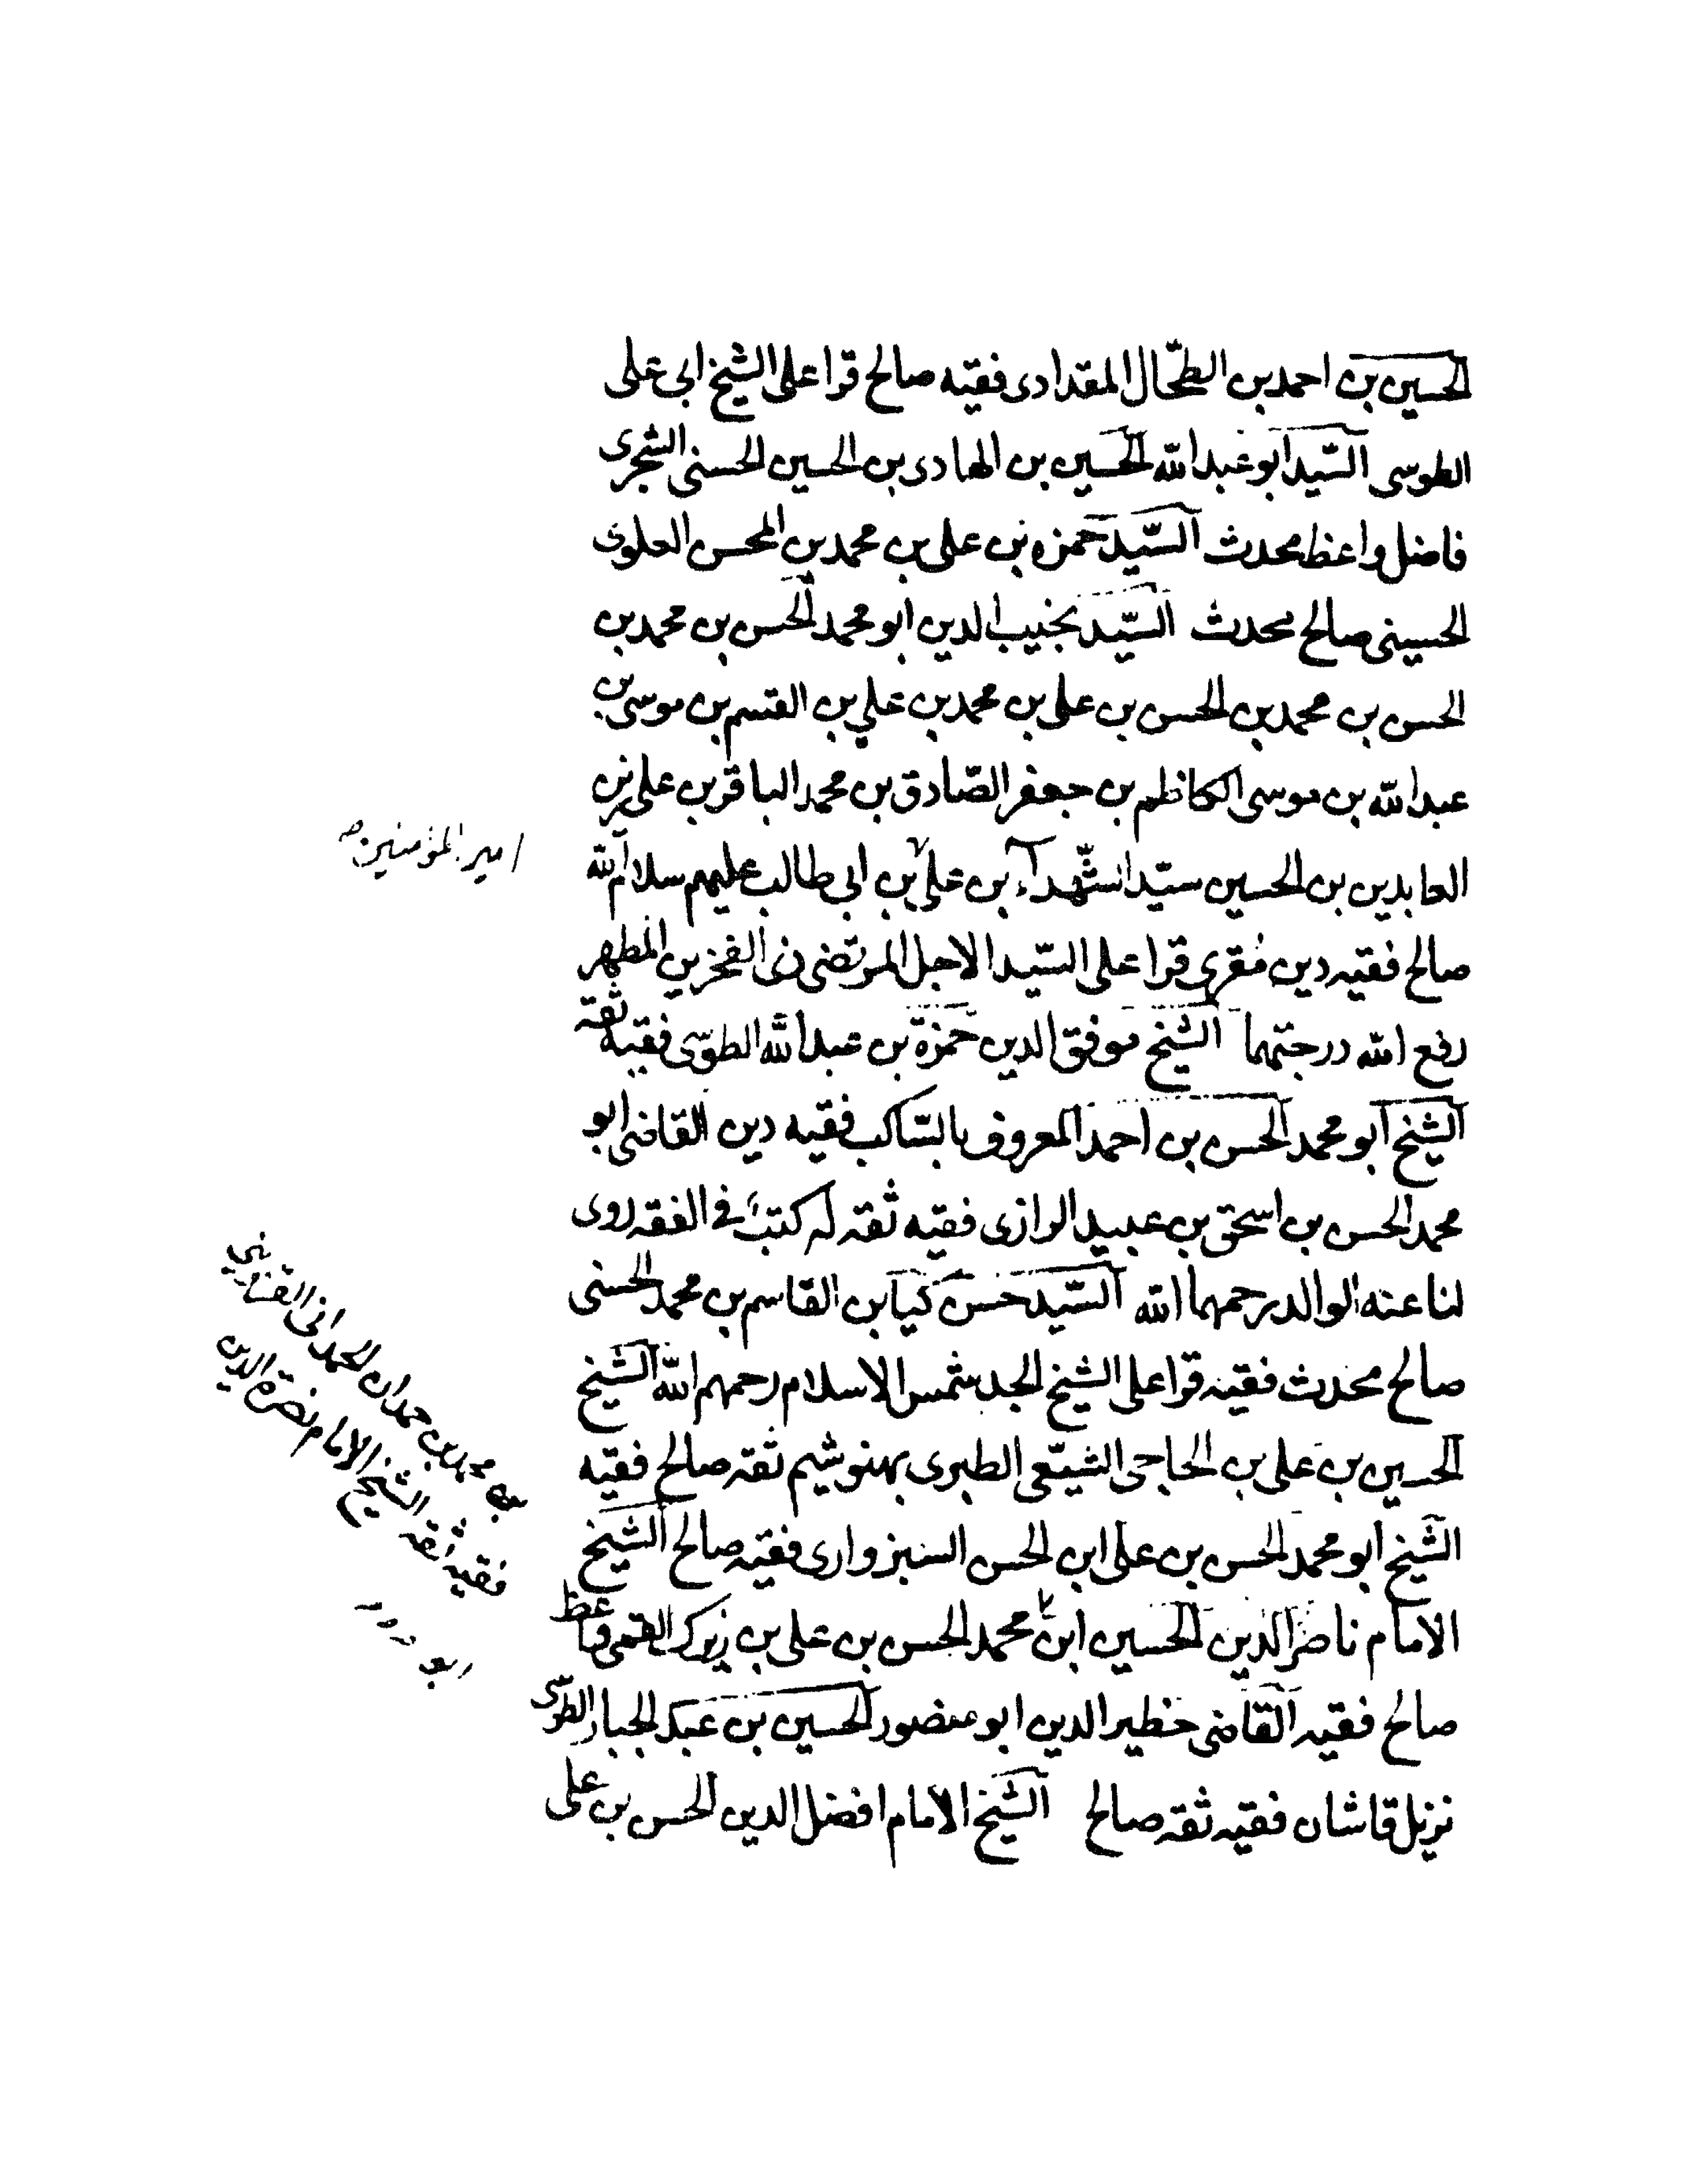 الحسين بن احمد بن الطحّال المقدادى فقيه صالح قرا على الشيخ ابى على
الطوسى السّيد ابو عبد الله الحسين بن الهادى بن الحسين الحسنى الشجرى
فاضل واعظ محدث السّيد حمزه بن على بن محمد بن المحسن العلوى
الحسينى صالح محدث السّيد نجيب الدين ابو محمد الحسن بن محمد بن
الحسن بن محمد بن الحسن بن على بن محمد بن على بن القسم بن موسى بن
عبد الله بن موسى الكاظم بن جعفر الصّادق بن محمد الباقر بن على زين
العابدين بن الحسين سيّد الشّهدآء بن على بن ابى طالب عليهم سلام الله
امير المؤمنين
صالح فقيه دين مقرى قرا على السّيد الاجل المرتضى ذى الفخرين المطهر
رفع الله درجتهما الشيخ موفق الدين حمزة بن عبد الله الطوسى فقيه ثقة
الشيخ ابو محمد الحسن بن احمد المعروف بالسّاكب فقيه دين القاضى ابو
محمد الحسن بن اسحق بن عبيد الرازى فقيه ثقه له كتب فى الفقه روى
لنا عنه الوالد رحمهما الله السّيد حسن كيا بن القاسم بن محمد الحسنى
صالح محدث فقيه قرا على الشيخ الجد شمس الاسلام رحمهم الله الشيخ
الحسين بن على بن الحاجى الشيعى الطبرى بهنوشيم ثقه صالح فقيه
الشيخ ابو محمد الحسن بن على ابن الحسن السبزوارى فقيه صالح الشيخ
الامام ناصر الدين الحسين ابن محمد الحسن بن على بن زيرك القمى واعظ
صالح فقيه القاضى خطير الدين ابو منصور الحسين بن عبد الجبار الطوسى
نزيل قاشان فقيه ثقه صالح الشيخ الامام افضل الدين الحسن بن على
بن محمد بن حمدان الحمدانى القزوينى
فقيه ثقه الشيخ الامام نصرة الدين
ابو